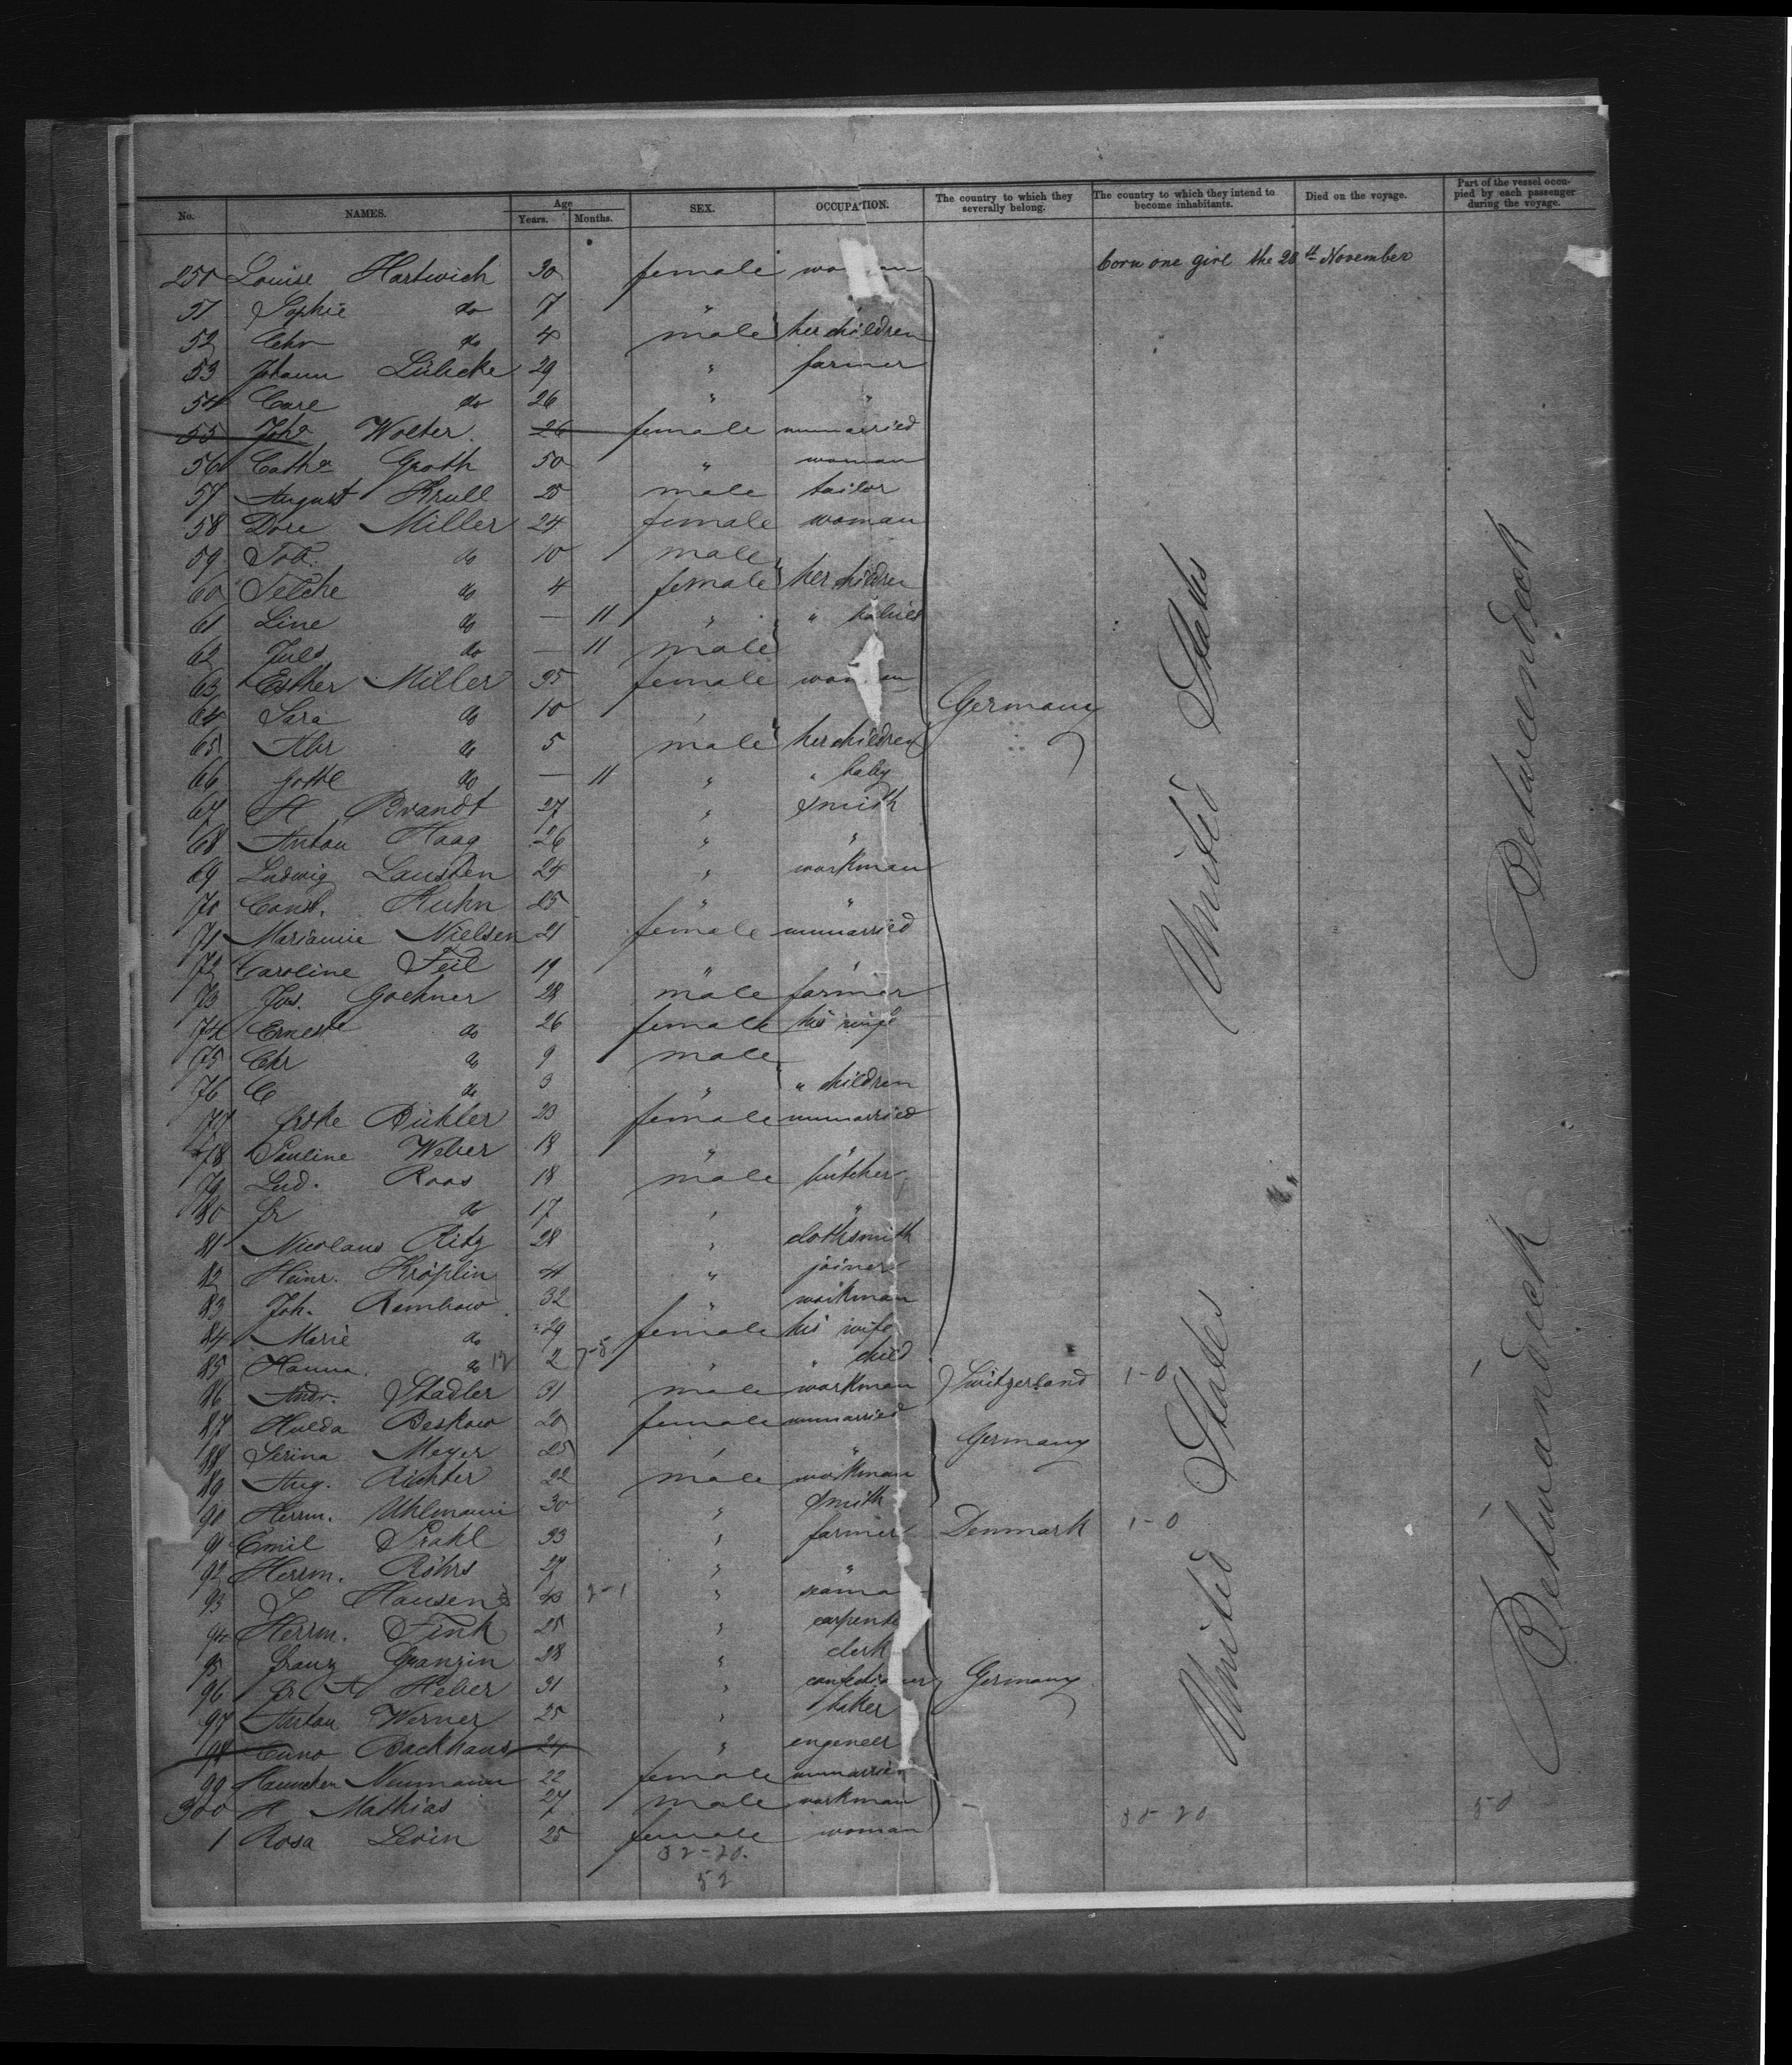 No. NAMES. Age Years. Months. SEX. OCCUPATION. The country to which they severally belong. The country to which they intend to become inhabitants. Died on the voyage. Part of the vessel occupied by each passenger during the voyage.
250 Louise Hartwich 30 female wo an born one girl the 28th November
51 Sophie do 7 "
52 do 4 male her children
53 Johann Lübcke 29 " farmer
54 Carl do 26 " "
55 Joha Wolter 26 female unmarried
56 Catha Groth 50 " woman
57 August Krull 25 male tailor
58 Dore Miller 24 female woman
59 do 10 male
60 do 4 female her children
61 Line do — 11 " " babies
62 Jules do — 11 male
63 Esther Miller 35 female wo an Germany
64 Sara do 10 "
65 Abr do 5 male her children
66 do — 11 " " baby
67 H Brandt 27 " smith
68 Anton Haag 26 " "
69 Ludwig 24 " workman
70 Const. Huhn 25 " "
71 Marianne Nielsen 21 female unmarried
72 Caroline Feil 19 " "
73 Jos. Gochner 28 male farmer
74 Ernest do 26 female his wife
75 Chr do 9 male
76 C do 3 " " children
77 23 female unmarried
78 Pauline Weber 18 " "
79 Lud. Roos 18 male butcher
80 Fr do 17 " "
81 Nicolaus Ritz 28 " clothsmith
82 Heinr. Kröplin " joiner
83 Joh. Rambow 32 " workman
84 Marie do 29 female his wife
85 Hanna do 12 2 " " child
86 Andr. Stadler 31 male workman Switzerland 1-0
87 Hulda Beskow 20 female unmarried
88 Serina Meyer 25 " " Germany
89 Aug. Richter 22 male workman
90 Herrm. Uhlmann 30 " smith
91 Emil Prahl 33 " farmer Denmark 1-0
92 Herrm. Röhrs 27 " "
93 Hansen 2-1 " seama
94 Herrm. Fink 25 " carpente
95 Franz Granzin 28 " clerk
96 Fr A Heber 31 " confectioner Germany
97 Anton Werner 25 " baker
98 Cuno Backhaus 24 " engeneer
99 Hannchen Neumann 22 female unmarried
300 H Mathias 27 male workman 30-20 50
1 Rosa Levin 25 female woman
32-20.
52
United States
United States
Betweendeck
Betweendeck